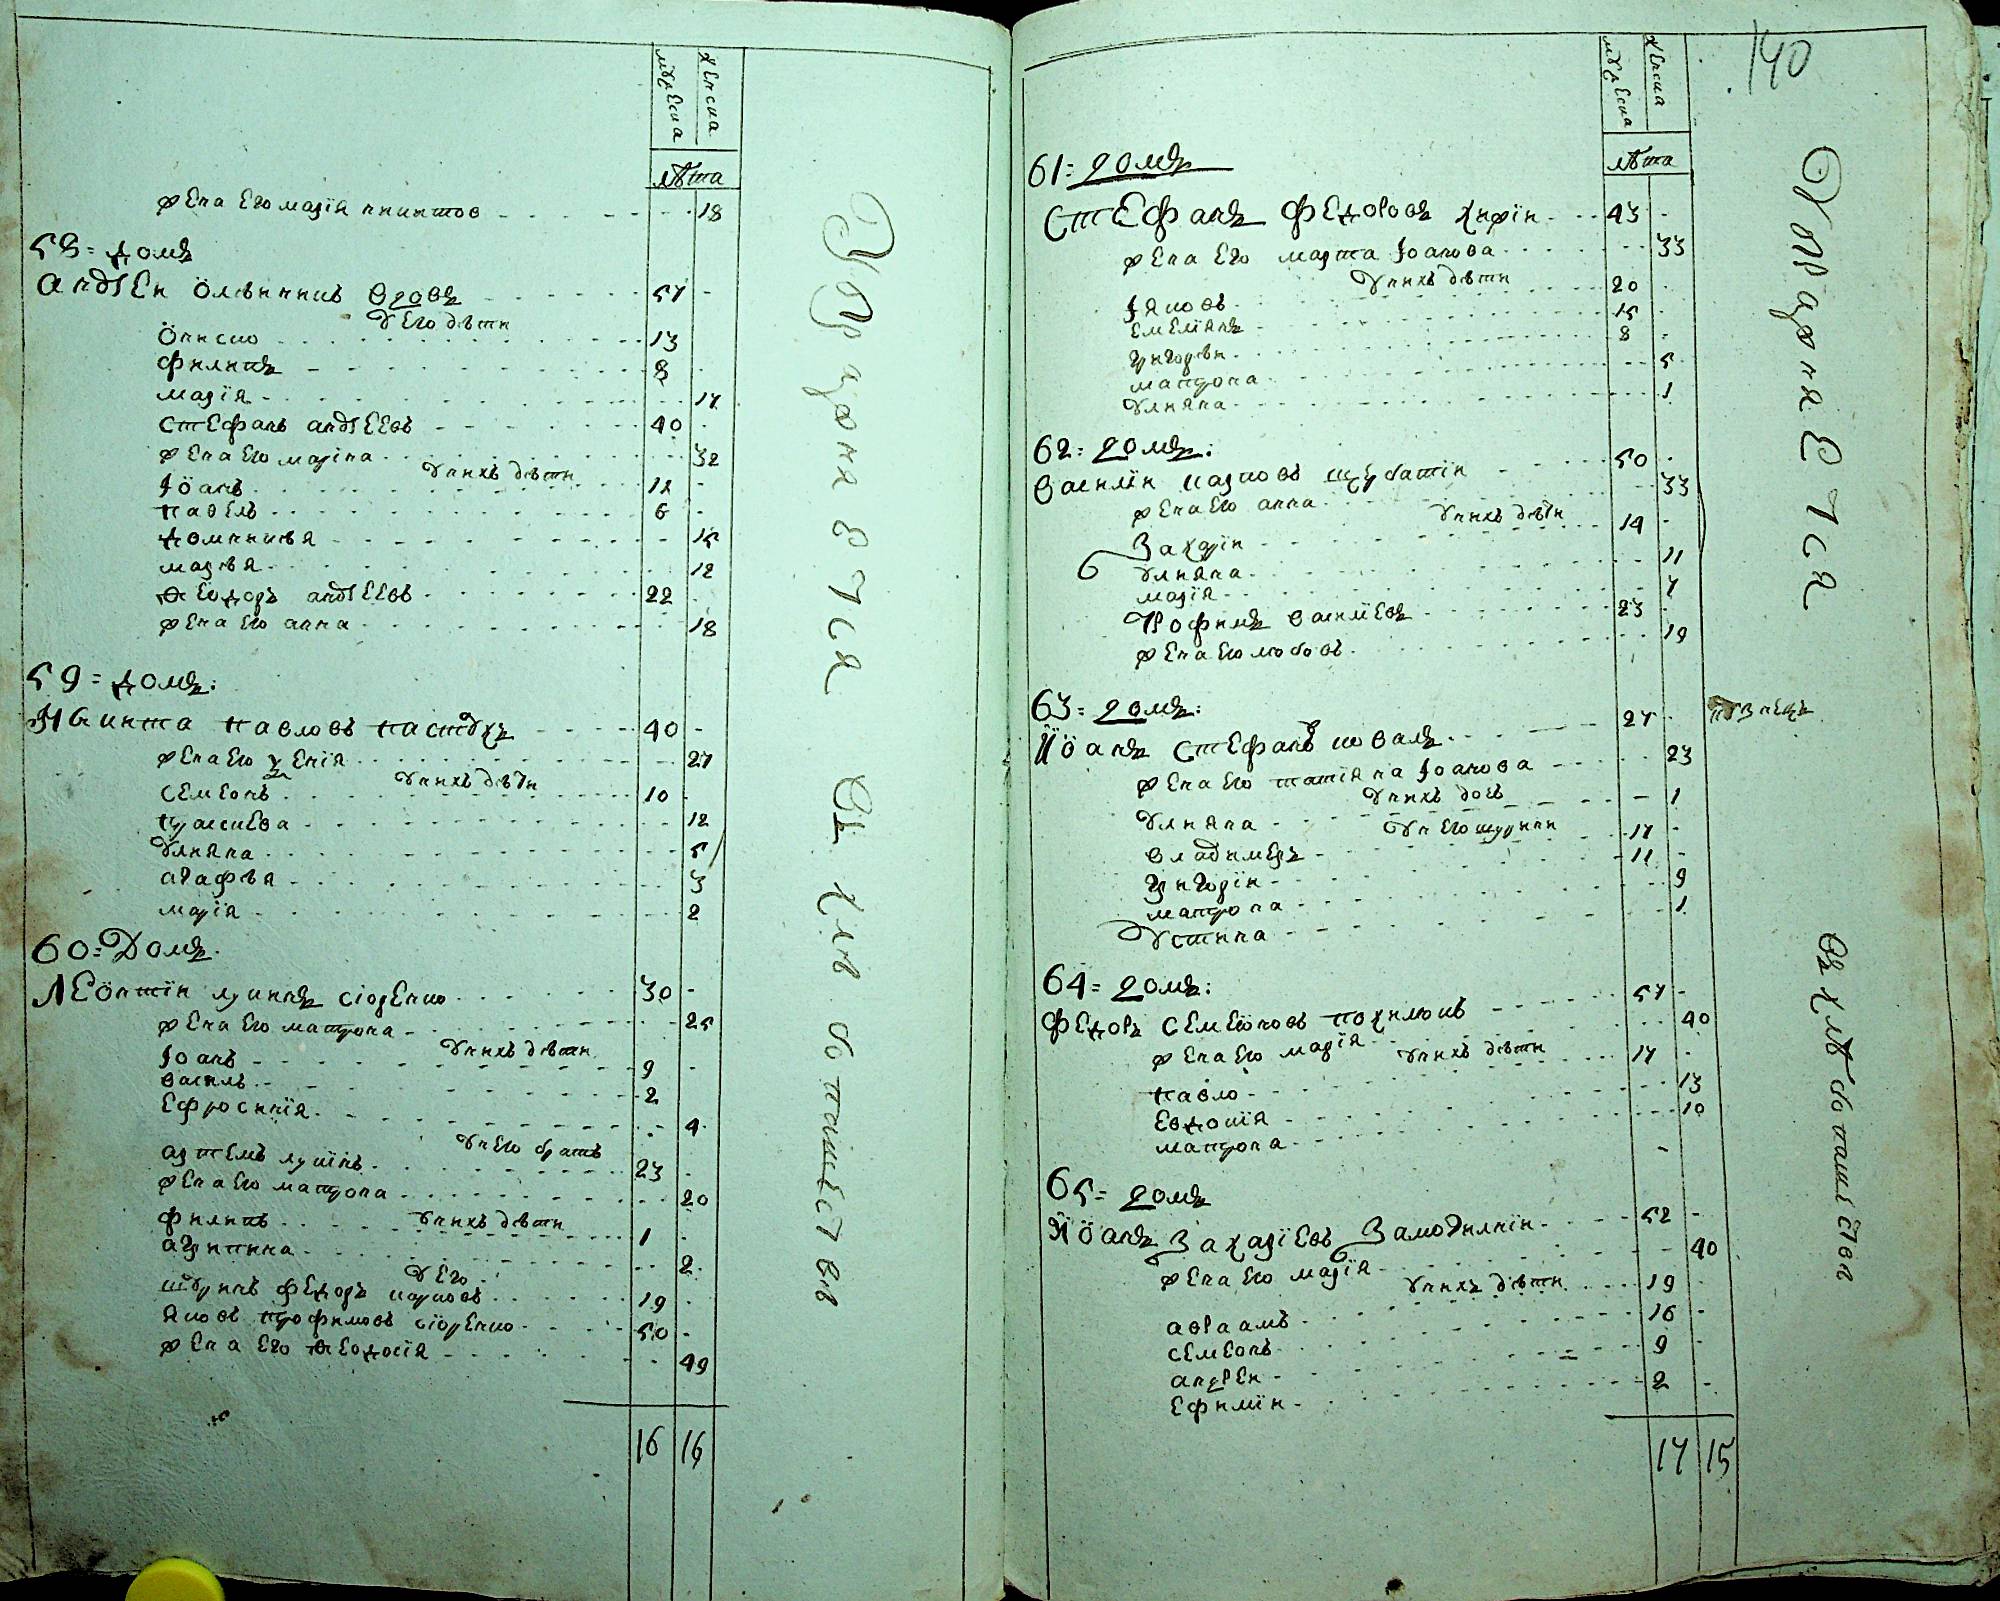 мужеска
женска
лѣта
жена его марія никитов 18
58 = домъ
андреи олѣиникъ вдовъ 57
у его дѣти
Ониско 13
филипъ 8
марія 17
стефанъ андреевъ 40
жена его марина 32
у нихъ дѣти
Іоанъ 12
павелъ 6
домникія 15
марѳія 12
ѳеодоръ андреевъ 22
жена его анна 18
59 = домъ:
Никита павловъ пастухъ 40
жена его ксенія 27
у нихъ дѣти
семеонъ 10
праскева 12
уляна 5
агафія 3
марія 2
60 = Домъ
Леонтіи лукинъ сіоренко 30
жена его матрона 25
у нихъ дѣти
Іоанъ 9
василъ 2
ефросинія 4
у него братъ
артемъ лукинъ 23
жена его матрона 20
у нихъ дѣти
филипъ 1
агрипина 2
у его
шуринъ федоръ карповъ 19
яковъ трофимовъ сіоренко 50
жена его ѳеодосія 49
16 16
Упражняется въ хлѣбопашествѣ
140
мужеска
женска
лѣта
61 = домъ
Стефанъ Федоровъ 43
жена его марта Іоанова 33
у нихъ дѣти
Іяковъ 20
емеліянъ 15
григорѣи 8
матрона 5
уляна 1
62 = домъ:
василіи карповъ щербатіи 50
жена его анна 33
у нихъ дѣти
Захаріи 14
уляна 11
марія 7
Трофимъ василіевъ 23
жена его любовъ 19
63 = домъ:
Іоанъ стефановъ ковалъ 27
жена его татіяна Іоанова 23
у нихъ дочь
уляна 1
у его шурини
владимеръ 17
григоріи 11
матрона 9
Устина 1
64 = домъ:
Федоръ семеіоновъ похилюкъ 57
жена его марія 40
у нихъ дѣти
павло 17
евдокія 13
матрона 10
65 = домъ
Іоанъ Захаріевъ Замогилніи 52
жена его марія 40
у нихъ дѣти
авраамъ 19
семеонъ 16
андреи 9
ефиміи 2
17 15
Упражняется
въ хлѣбопашествѣ